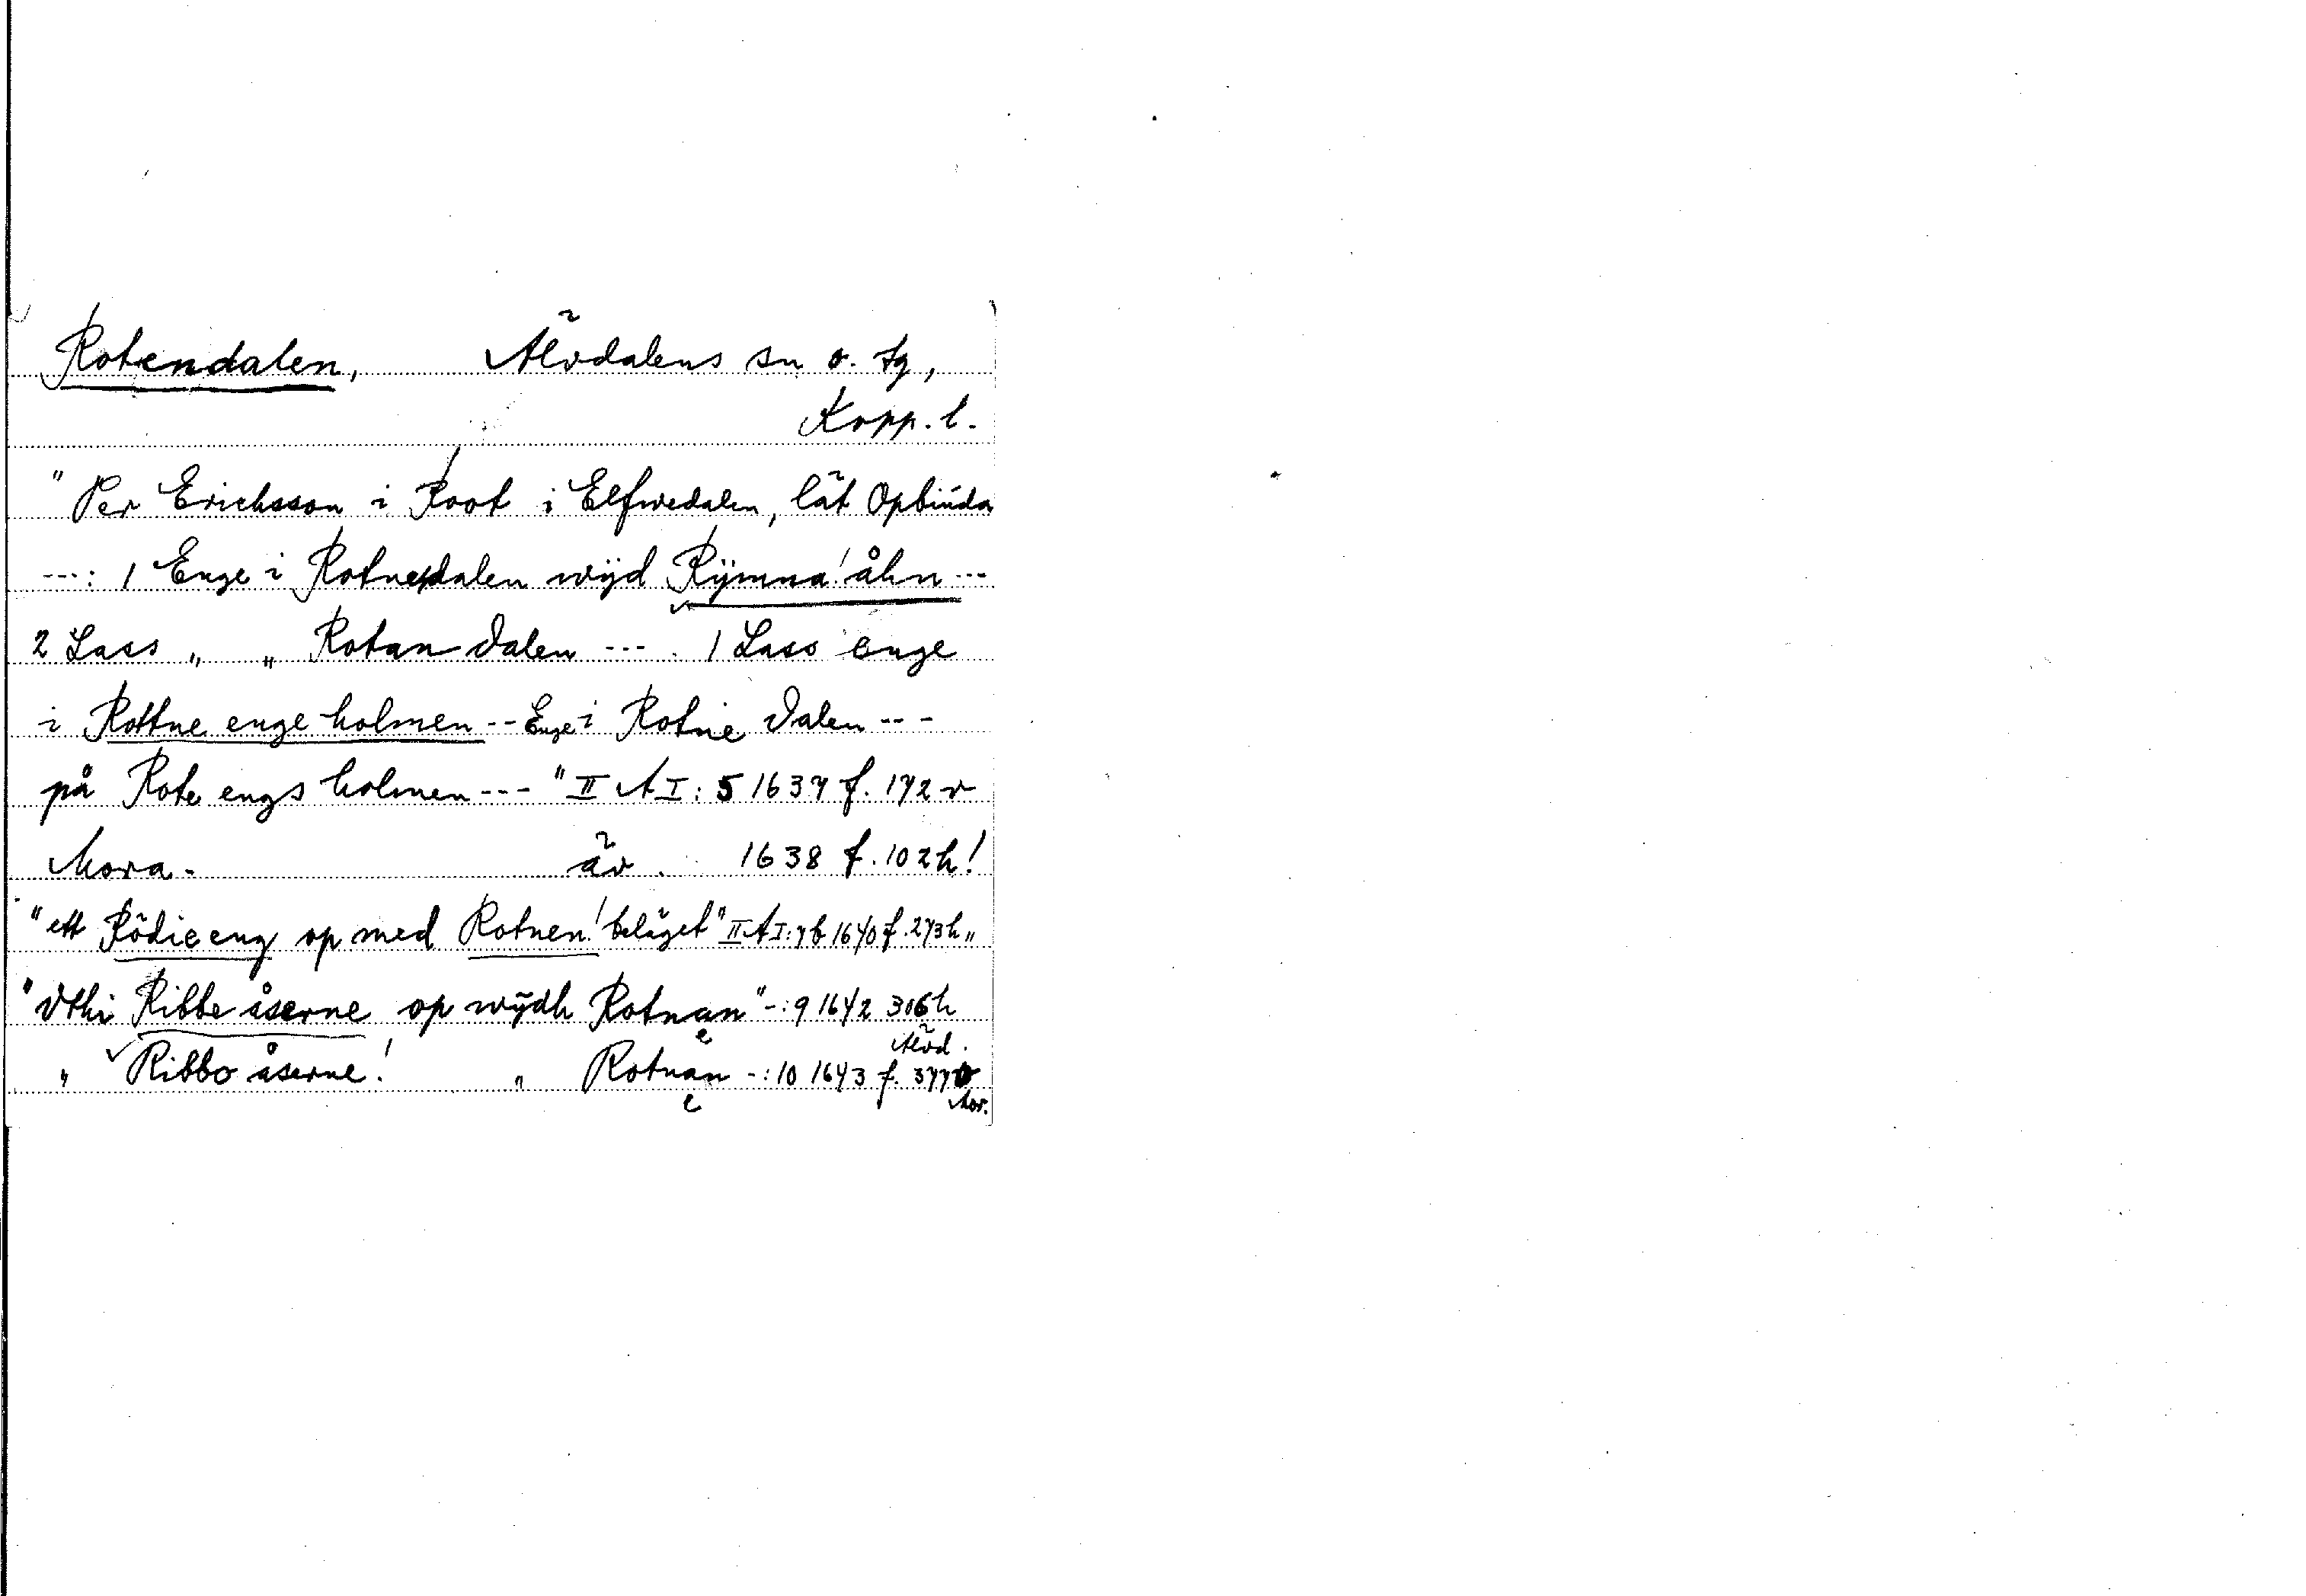 Rotendalen, Älvdalens sn o. tg,
Kopp. l.
"Per Erichsson i Root i Elfwedalen, låt Opbiúda
---: 1 Enge i Rotnesdalen wÿd Rÿmna! åhn ---
2 Lass " " Rotan dalen --- . 1 Lass enge
i Rottne enge holmen -- Enge i Rotne dalen ---
på Rote engs holmen --- " II A I: 5 1637 f. 172 v
Mora. äv. 1638 f. 102h!
"ett Rödie eng op med Rotnen! beläget" II A I: 7b 1640 f. 273h "
"Vthi Ribbe åserne op wÿdh Rotnan" -: 9 1642 306h
Älvd.
" Ribbo åserne! " Rotnan -: 10 1643 f. 377
Mor.